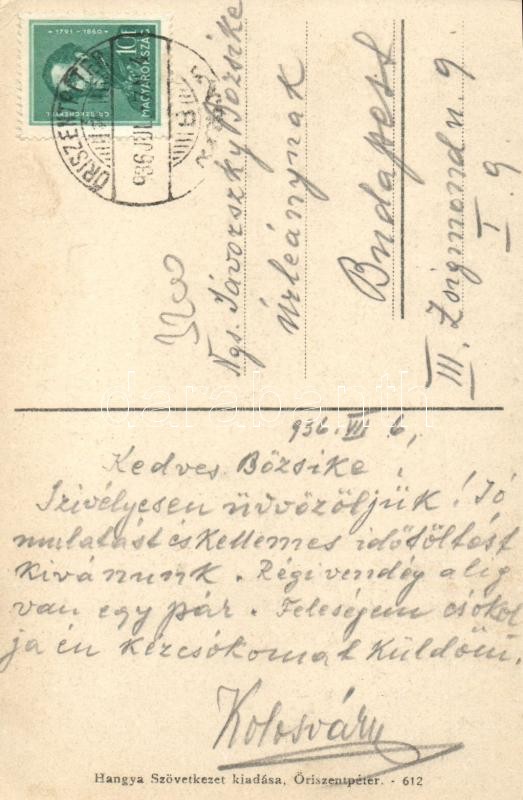 1791-1860
10f
MAGYARORSZÁG
GR. SZÉCHENYI I.
ŐRISZENTPÉTER
936 JUL
B
Ngs. Jávorszky Bözsike
Úrleánynak
Budapest
III. Zsigmond u. 9
I. 9
936. VII 6.
Kedves Bözsike!
Szivélyesen üdvözöljük! Jó
mulatást és kellemes időtöltést
kivánunk. Régi vendég alig
van egy pár. Feleségem csókol
ja én kézcsókomat küldöm.
Kolosváry
Hangya Szövetkezet kiadása, Őriszentpéter. - 612
darabanth